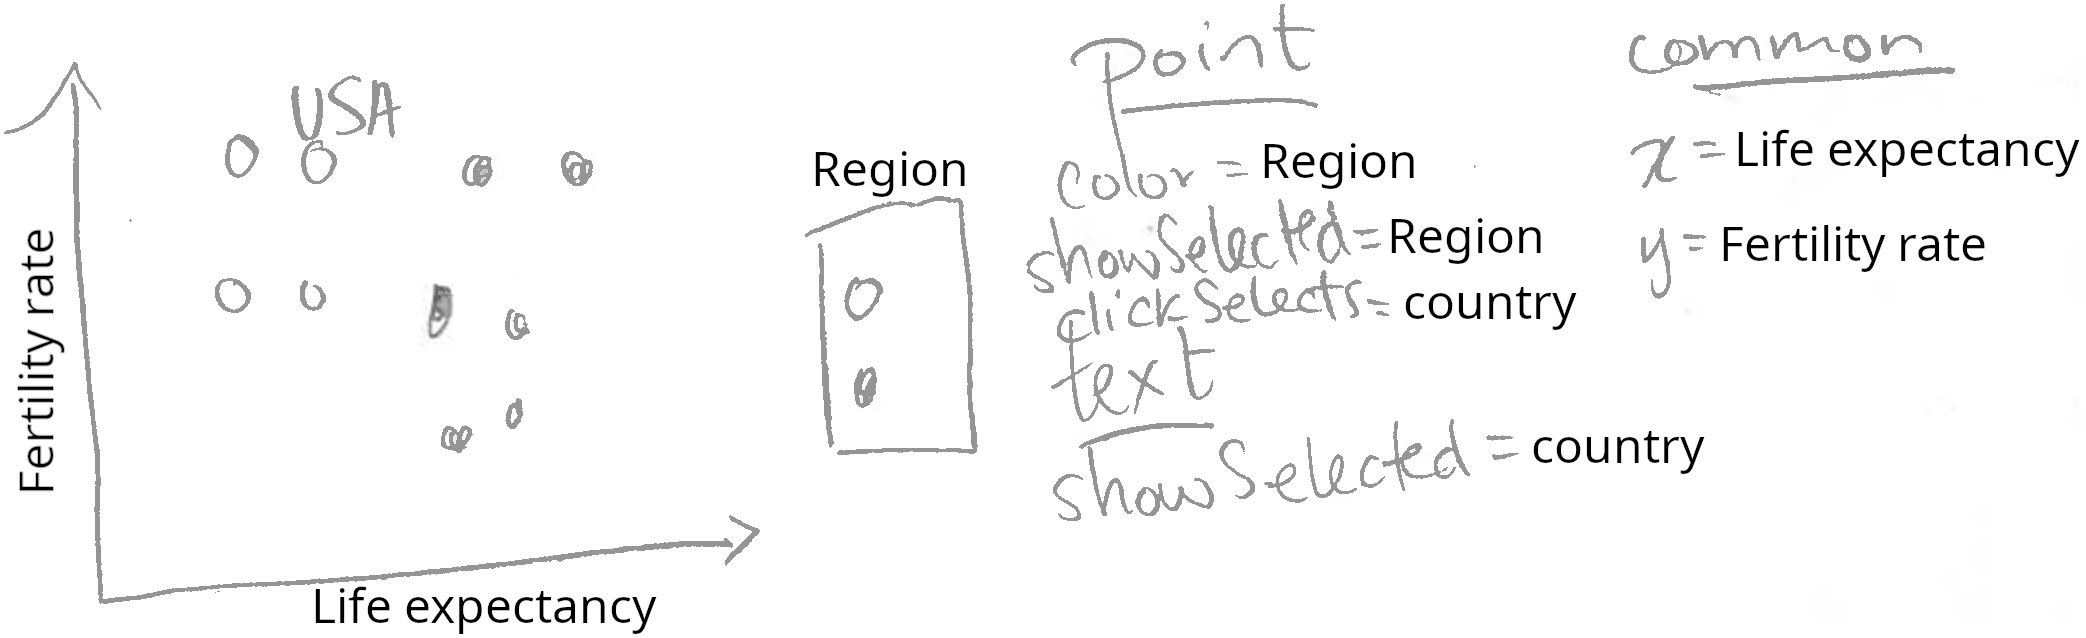 USA
Fertility rate
Life expectancy
Region
point
color = Region
showSelected = Region
clickSelects = country
text
showSelected = country
common
x = Life expectancy
y = Fertility rate